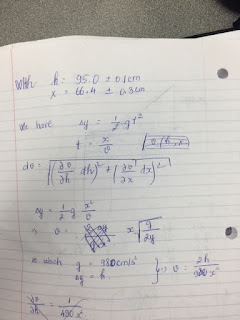 With h = 95.0 ± 0.1cm
x = 66.4 ± 0.3cm
We have Δy = 1/2 g t²
t = x/v
dv = √((∂v/∂h dh)² + (∂v/∂x dx)²)
Δy = 1/2 g x²/v²
v = x √(g/2y)
which g = 980cm/s²
Δy = h } ⇒ v = 2h/980x²
∂v/∂h = 1/490x²